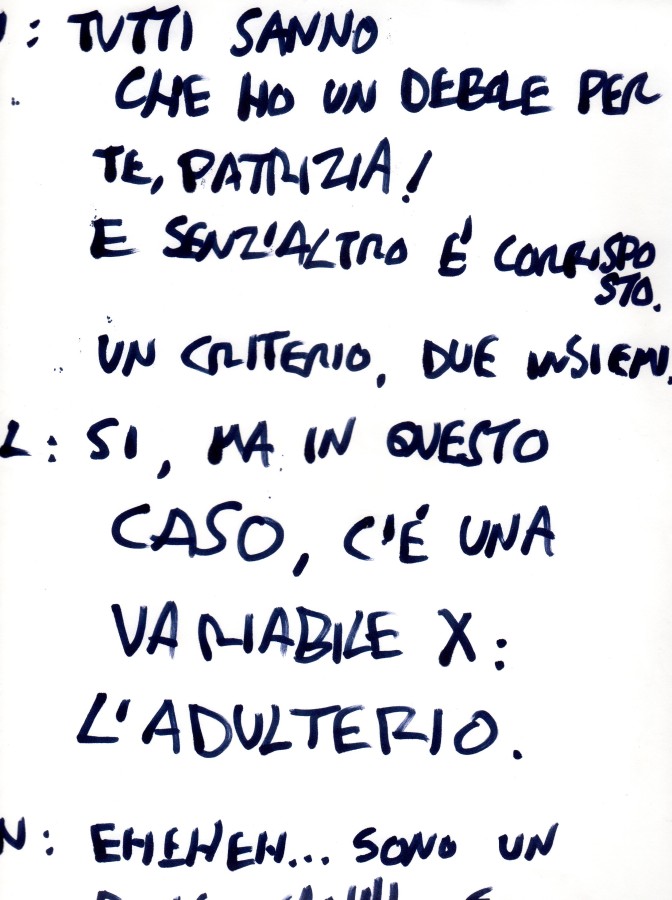 : TUTTI SANNO
CHE HO UN DEBOLE PER
TE, PATRIZIA!
E SENZ'ALTRO É CORRISPO
STO.
UN CRITERIO, DUE INSIEMI.
L: SI, MA IN QUESTO
CASO, C'É UNA
VARIABILE X:
L'ADULTERIO.
N: EHEHEH... SONO UN